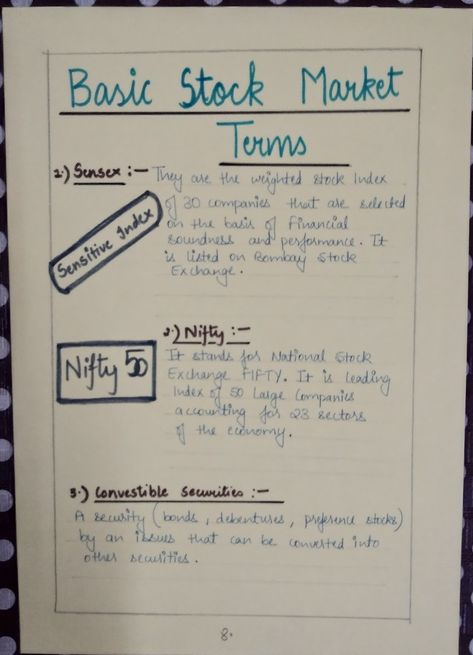 Basic Stock Market
Terms
1.) Sensex :-
They are the weighted stock Index
of 30 companies that are selected
on the basis of Financial
soundness and performance. It
is listed on Bombay Stock
Exchange.
Sensitive Index
2.) Nifty :-
It stands for National Stock
Exchange FIFTY. It is leading
Index of 50 Large Companies
accounting for 23 sectors
of the economy.
Nifty 50
3.) Convestible Securities :-
A security (bonds, debentures, preference stocks)
by an issues that can be converted into
other securities.
8.